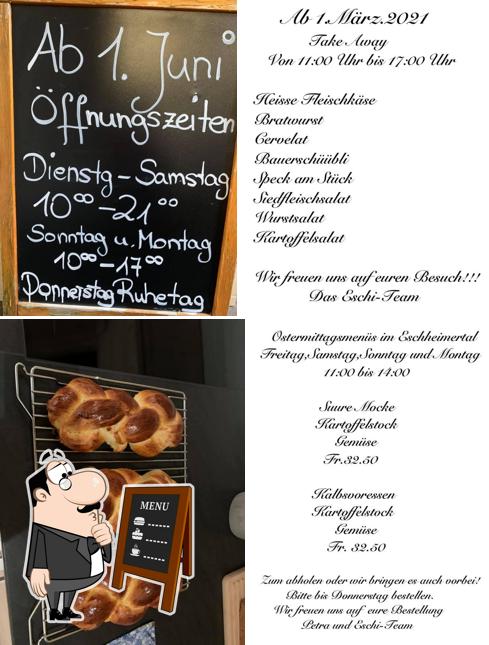 Ab 1. Juni
Öffnungszeiten
Dienstg - Samstag
10⁰⁰ - 21⁰⁰
Sonntag u. Montag
10⁰⁰ - 17⁰⁰
Donnerstag Ruhetag
Ab 1.März.2021
Take Away
Von 11:00 Uhr bis 17:00 Uhr
Heisse Fleischkäse
Bratwurst
Cervelat
Bauerschüübli
Speck am Stück
Siedfleischsalat
Wurstsalat
Kartoffelsalat
Wir freuen uns auf euren Besuch!!!
Das Eschi-Team
MENU
Ostermittagsmenüs im Eschheimertal
Freitag,Samstag,Sonntag und Montag
11:00 bis 14:00
Suure Mocke
Kartoffelstock
Gemüse
Fr.32.50
Kalbsvoressen
Kartoffelstock
Gemüse
Fr. 32.50
Zum abholen oder wir bringen es auch vorbei!
Bitte bis Donnerstag bestellen.
Wir freuen uns auf eure Bestellung
Petra und Eschi-Team